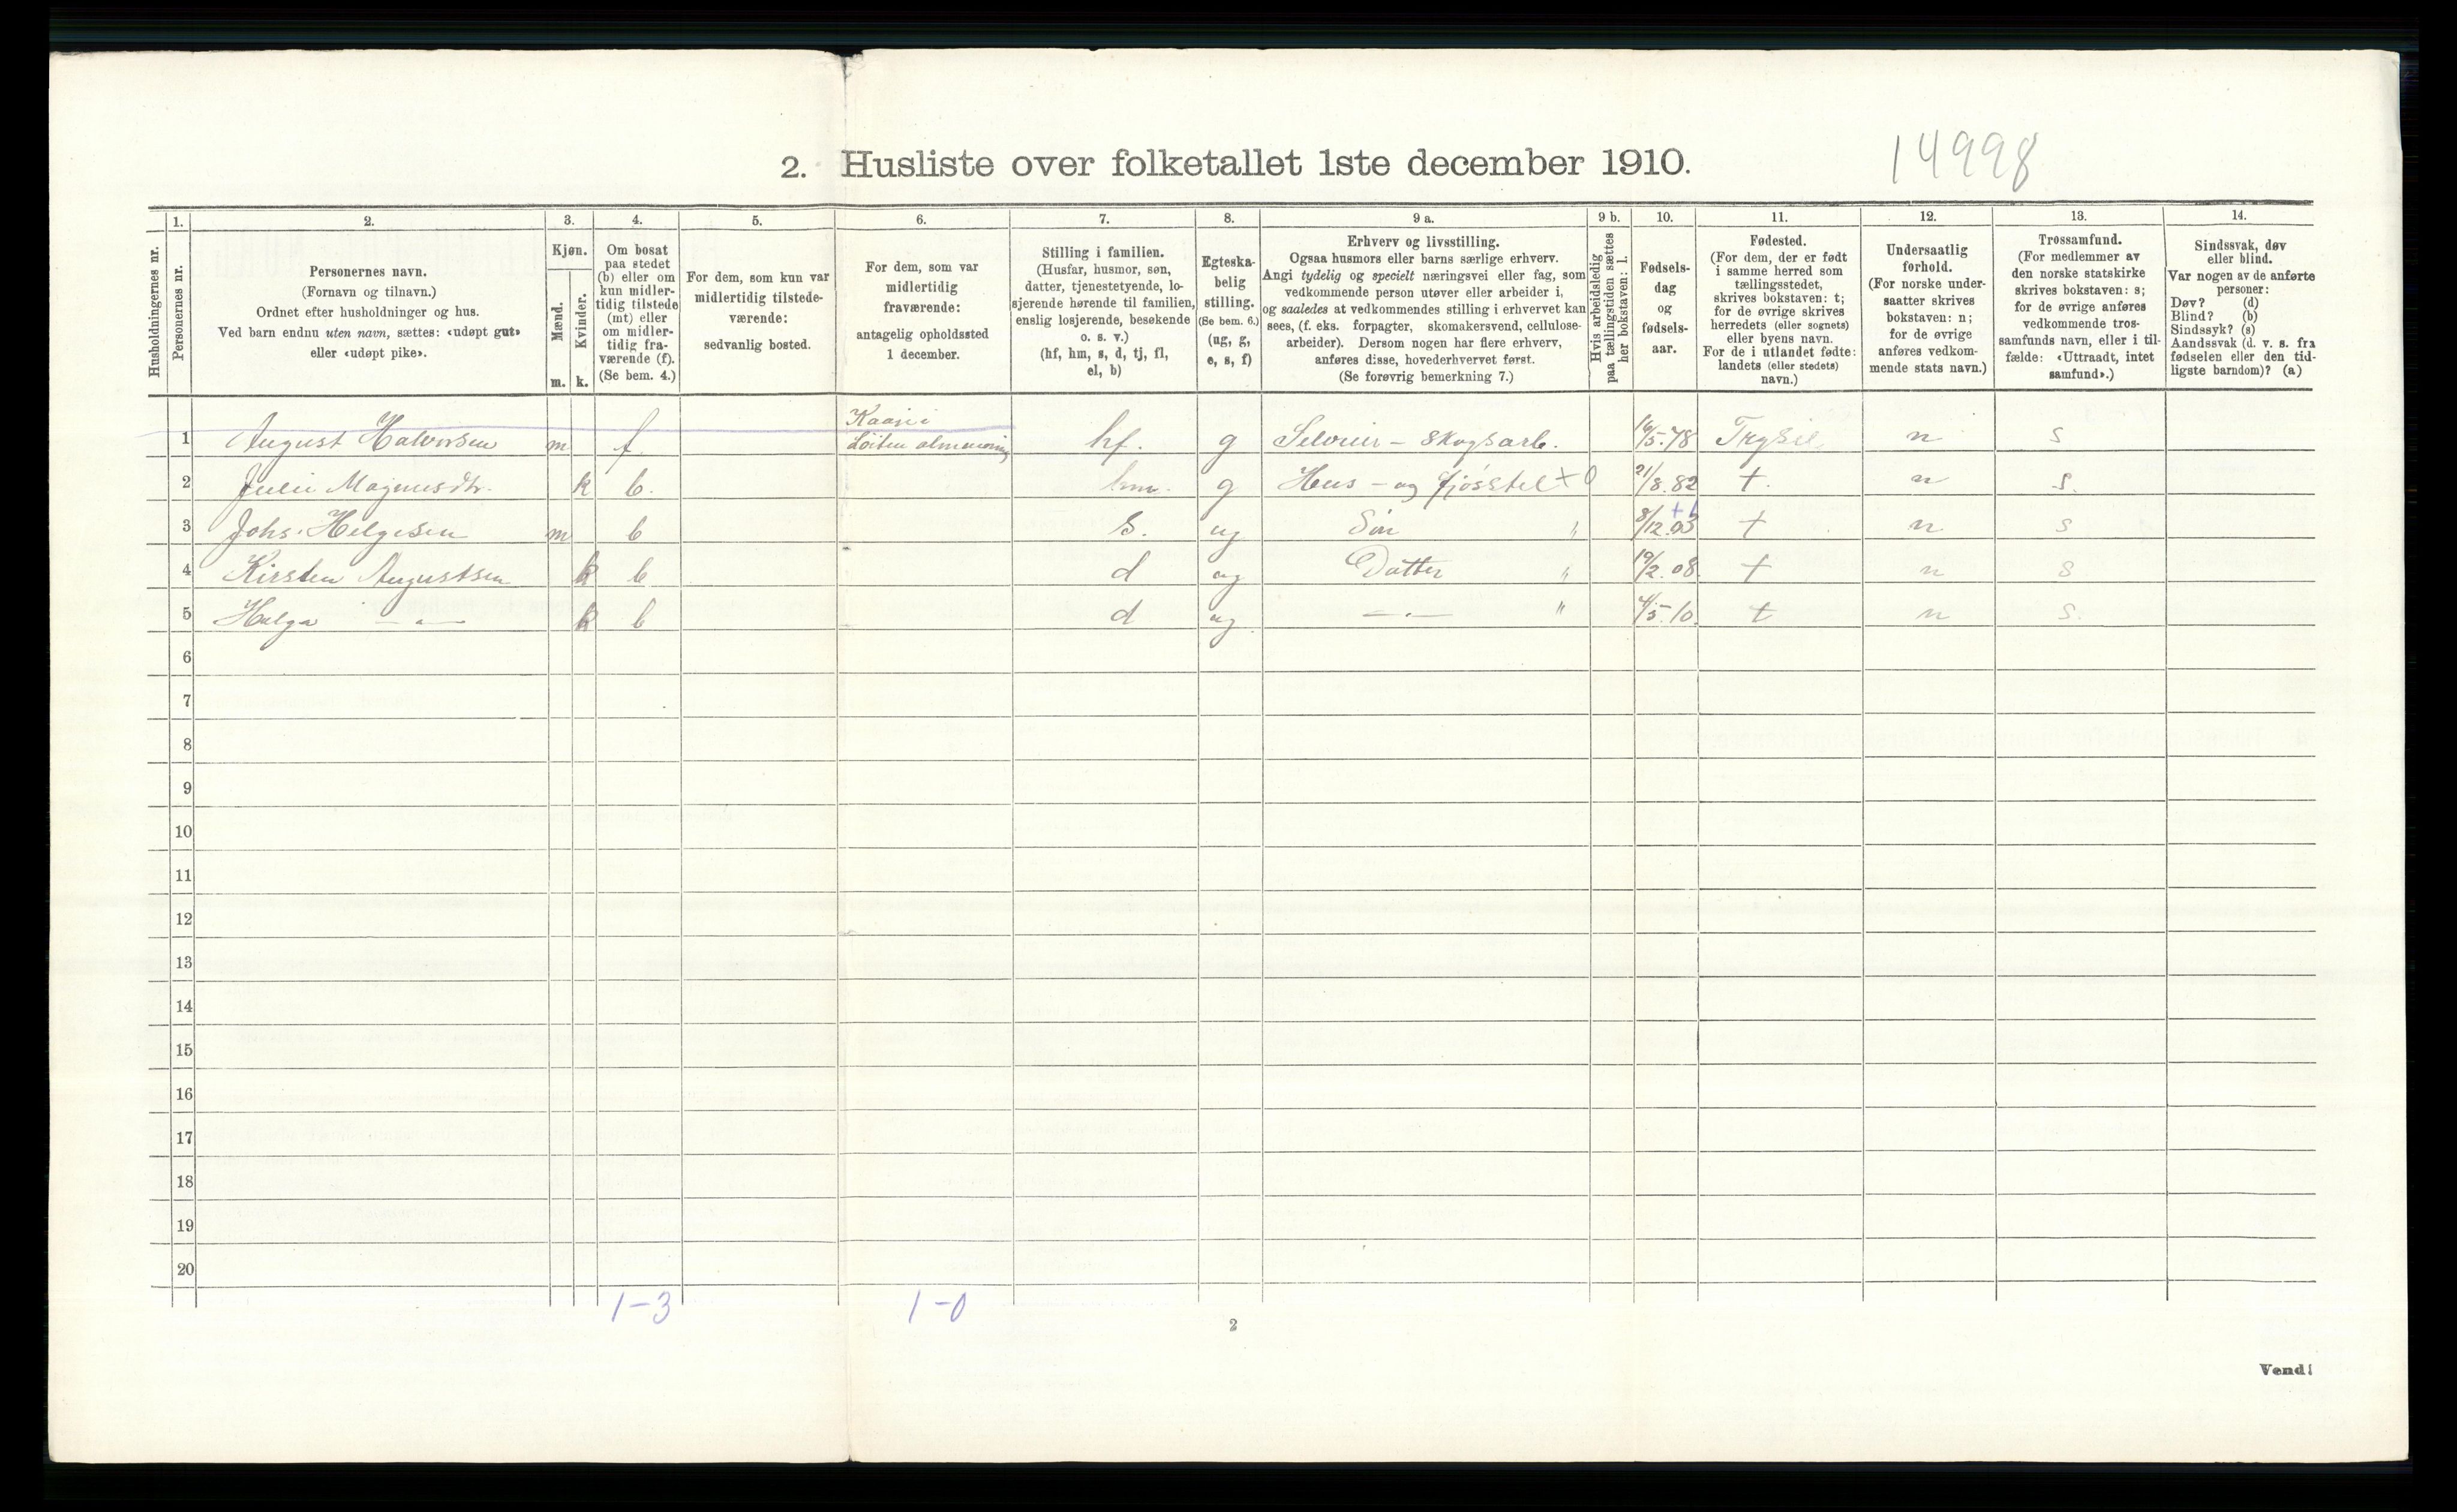 14998
2. Husliste over folketallet 1ste december 1910.
Husholdningernes nr.
1.
Personernes nr.
2.
Personernes navn.
(Fornavn og tilnavn.)
Ordnet efter husholdninger og hus.
Ved barn endnu uten navn, sættes: «udøpt gut»
eller «udøpt pike».
3.
Kjøn.
Mænd.
Kvinder.
m. k.
4.
Om bosat
paa stedet
(b) eller om
kun midler-
tidig tilstede
(mt) eller
om midler-
tidig fra-
værende (f).
(Se bem. 4.)
5.
For dem, som kun var
midlertidig tilstede-
værende:
sedvanlig bosted.
6.
For dem, som var
midlertidig
fraværende:
antagelig opholdssted
1 december.
7.
Stilling i familien.
(Husfar, husmor, søn,
datter, tjenestetyende, lo-
sjerende hørende til familien,
enslig losjerende, besøkende
o. s. v.)
(hf, hm, s, d, tj, fl,
el, b)
8.
Egteska-
belig
stilling.
(Se bem. 6.)
(ug, g,
e, s, f)
9 a.
Erhverv og livsstilling.
Ogsaa husmors eller barns særlige erhverv.
Angi tydelig og specielt næringsvei eller fag, som
vedkommende person utøver eller arbeider i,
og saaledes at vedkommendes stilling i erhvervet kan
sees, (f. eks. forpagter, skomakersvend, cellulose-
arbeider). Dersom nogen har flere erhverv,
anføres disse, hovederhvervet først.
(Se forøvrig bemerkning 7.)
9 b.
Hvis arbeidsledig
paa tællingstiden sættes
her bokstaven: l.
10.
Fødsels-
dag
og
fødsels-
aar.
11.
Fødested.
(For dem, der er født
i samme herred som
tællingsstedet,
skrives bokstaven: t;
for de øvrige skrives
herredets (eller sognets)
eller byens navn.
For de i utlandet fødte:
landets (eller stedets)
navn.)
12.
Undersaatlig
forhold.
(For norske under-
saatter skrives
bokstaven: n;
for de øvrige
anføres vedkom-
mende stats navn.)
13.
Trossamfund.
(For medlemmer av
den norske statskirke
skrives bokstaven: s;
for de øvrige anføres
vedkommende tros-
samfunds navn, eller i til-
fælde: «Uttraadt, intet
samfund».)
14.
Sindssvak, døv
eller blind.
Var nogen av de anførte
personer:
Døv? (d)
Blind? (b)
Sindssyk? (s)
Aandssvak (d. v. s. fra
fødselen eller den tid-
ligste barndom)? (a)
1 August Halvorsen m f Løiten almenning hf. g Selveier - skogsarb. 16/5.78 Trysil n s
2 Julie Magnusdtr. k b. hm. g Hus - og fjøsstel 21/8.82 t. n s.
3 Johs. Helgesen m b s. ug Søn " 8/12.03 t n s
4 Kirsten Augustsen k b d ug Datter " 19/2.08. t n s
5 Helga —"— k b d ug. —"— " 4/5.10. t n s.
6
7
8
9
10
11
12
13
14
15
16
17
18
19
20
1-3 1-0
2
Vend!